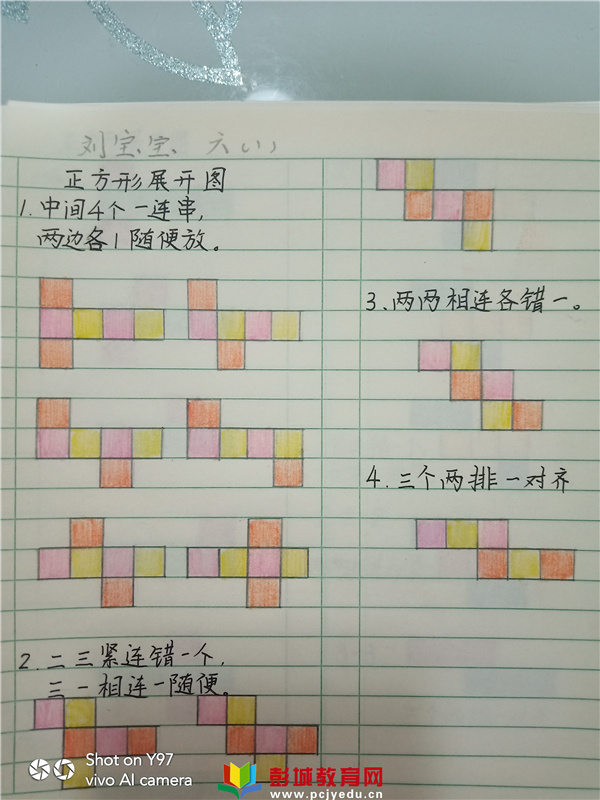 刘宝宝 六(1)
正方形展开图
1.中间4个一连串,
两边各1随便放。
2.二三紧连错一个,
三一相连一随便。
3.两两相连各错一。
4.三个两排一对齐
Shot on Y97
vivo AI camera
彭城教育网
www.pcjyedu.cn